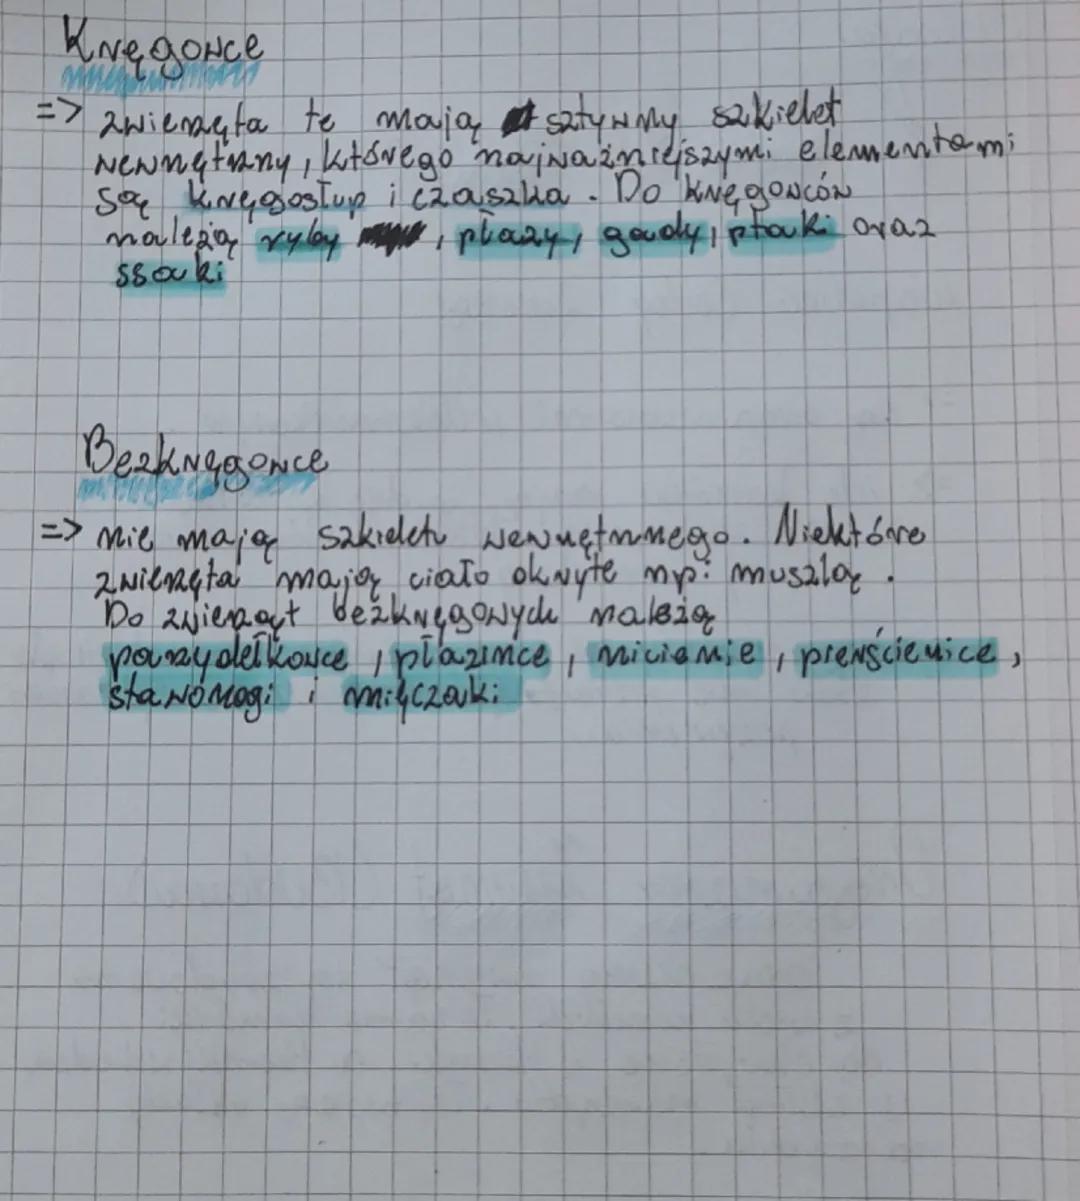 Kręgowce
=> zwierzęta te mają sztywny szkielet
wewnętrzny, którego najważniejszymi elementami
są kręgosłup i czaszka. Do kręgowców
należą ryby, płazy, gady, ptaki oraz
ssaki
Bezkręgowce
=> nie mają szkieletu wewnętrznego. Niektóre
zwierzęta mają ciało okryte np: muszlą.
Do zwierząt bezkręgowych należą
parzydełkowce, płazińce, nicienie, pierścienice,
stawonogi i mięczaki